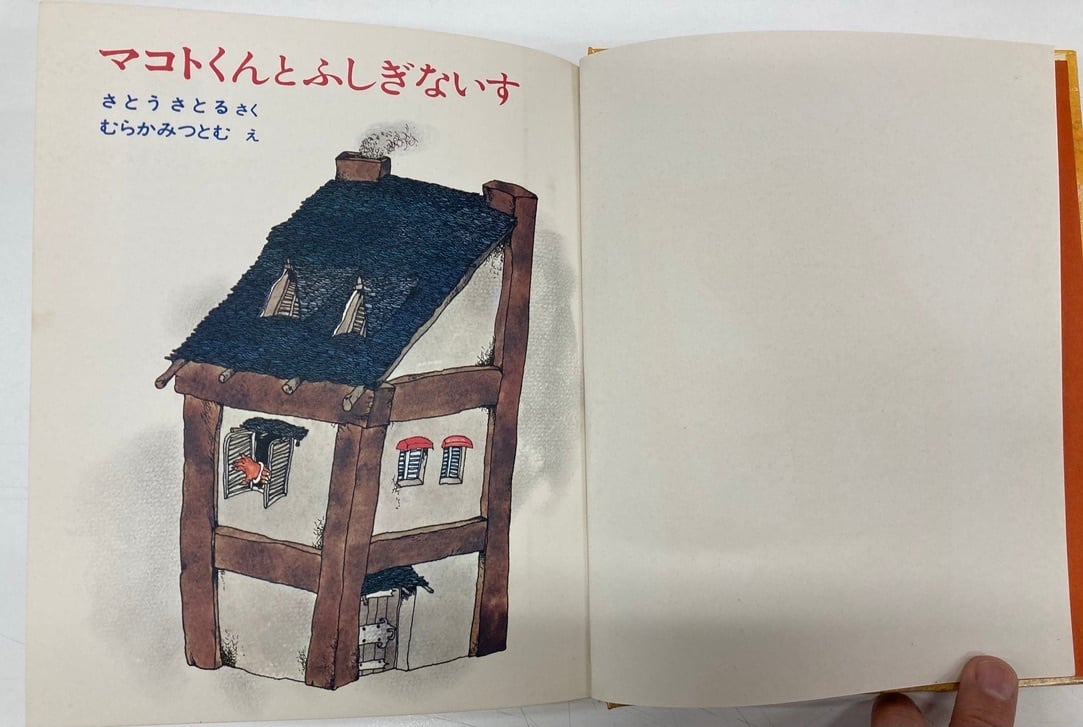 マコトくんとふしぎないす
さとうさとる さく
むらかみつとむ え